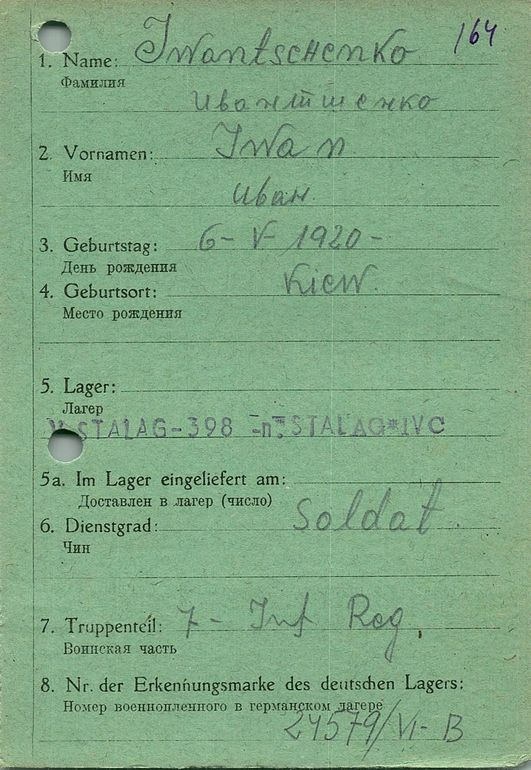 164
1. Name: Iwantschenko
Фамилия
Ивантшенко
2. Vornamen: Iwan
Имя
Иван.
3. Geburtstag: 6-V-1920-
День рождения
4. Geburtsort: Kiew.
Место рождения
5. Lager:
Лагер
STALAG-398 -n. STALAG*IVC
5a. Im Lager eingeliefert am:
Доставлен в лагер (число)
6. Dienstgrad: Soldat.
Чин
7. Truppenteil: 7- Inf Reg.
Воинская часть
8. Nr. der Erkennungsmarke des deutschen Lagers:
Номер военнопленного в германском лагере
24579/VI-B